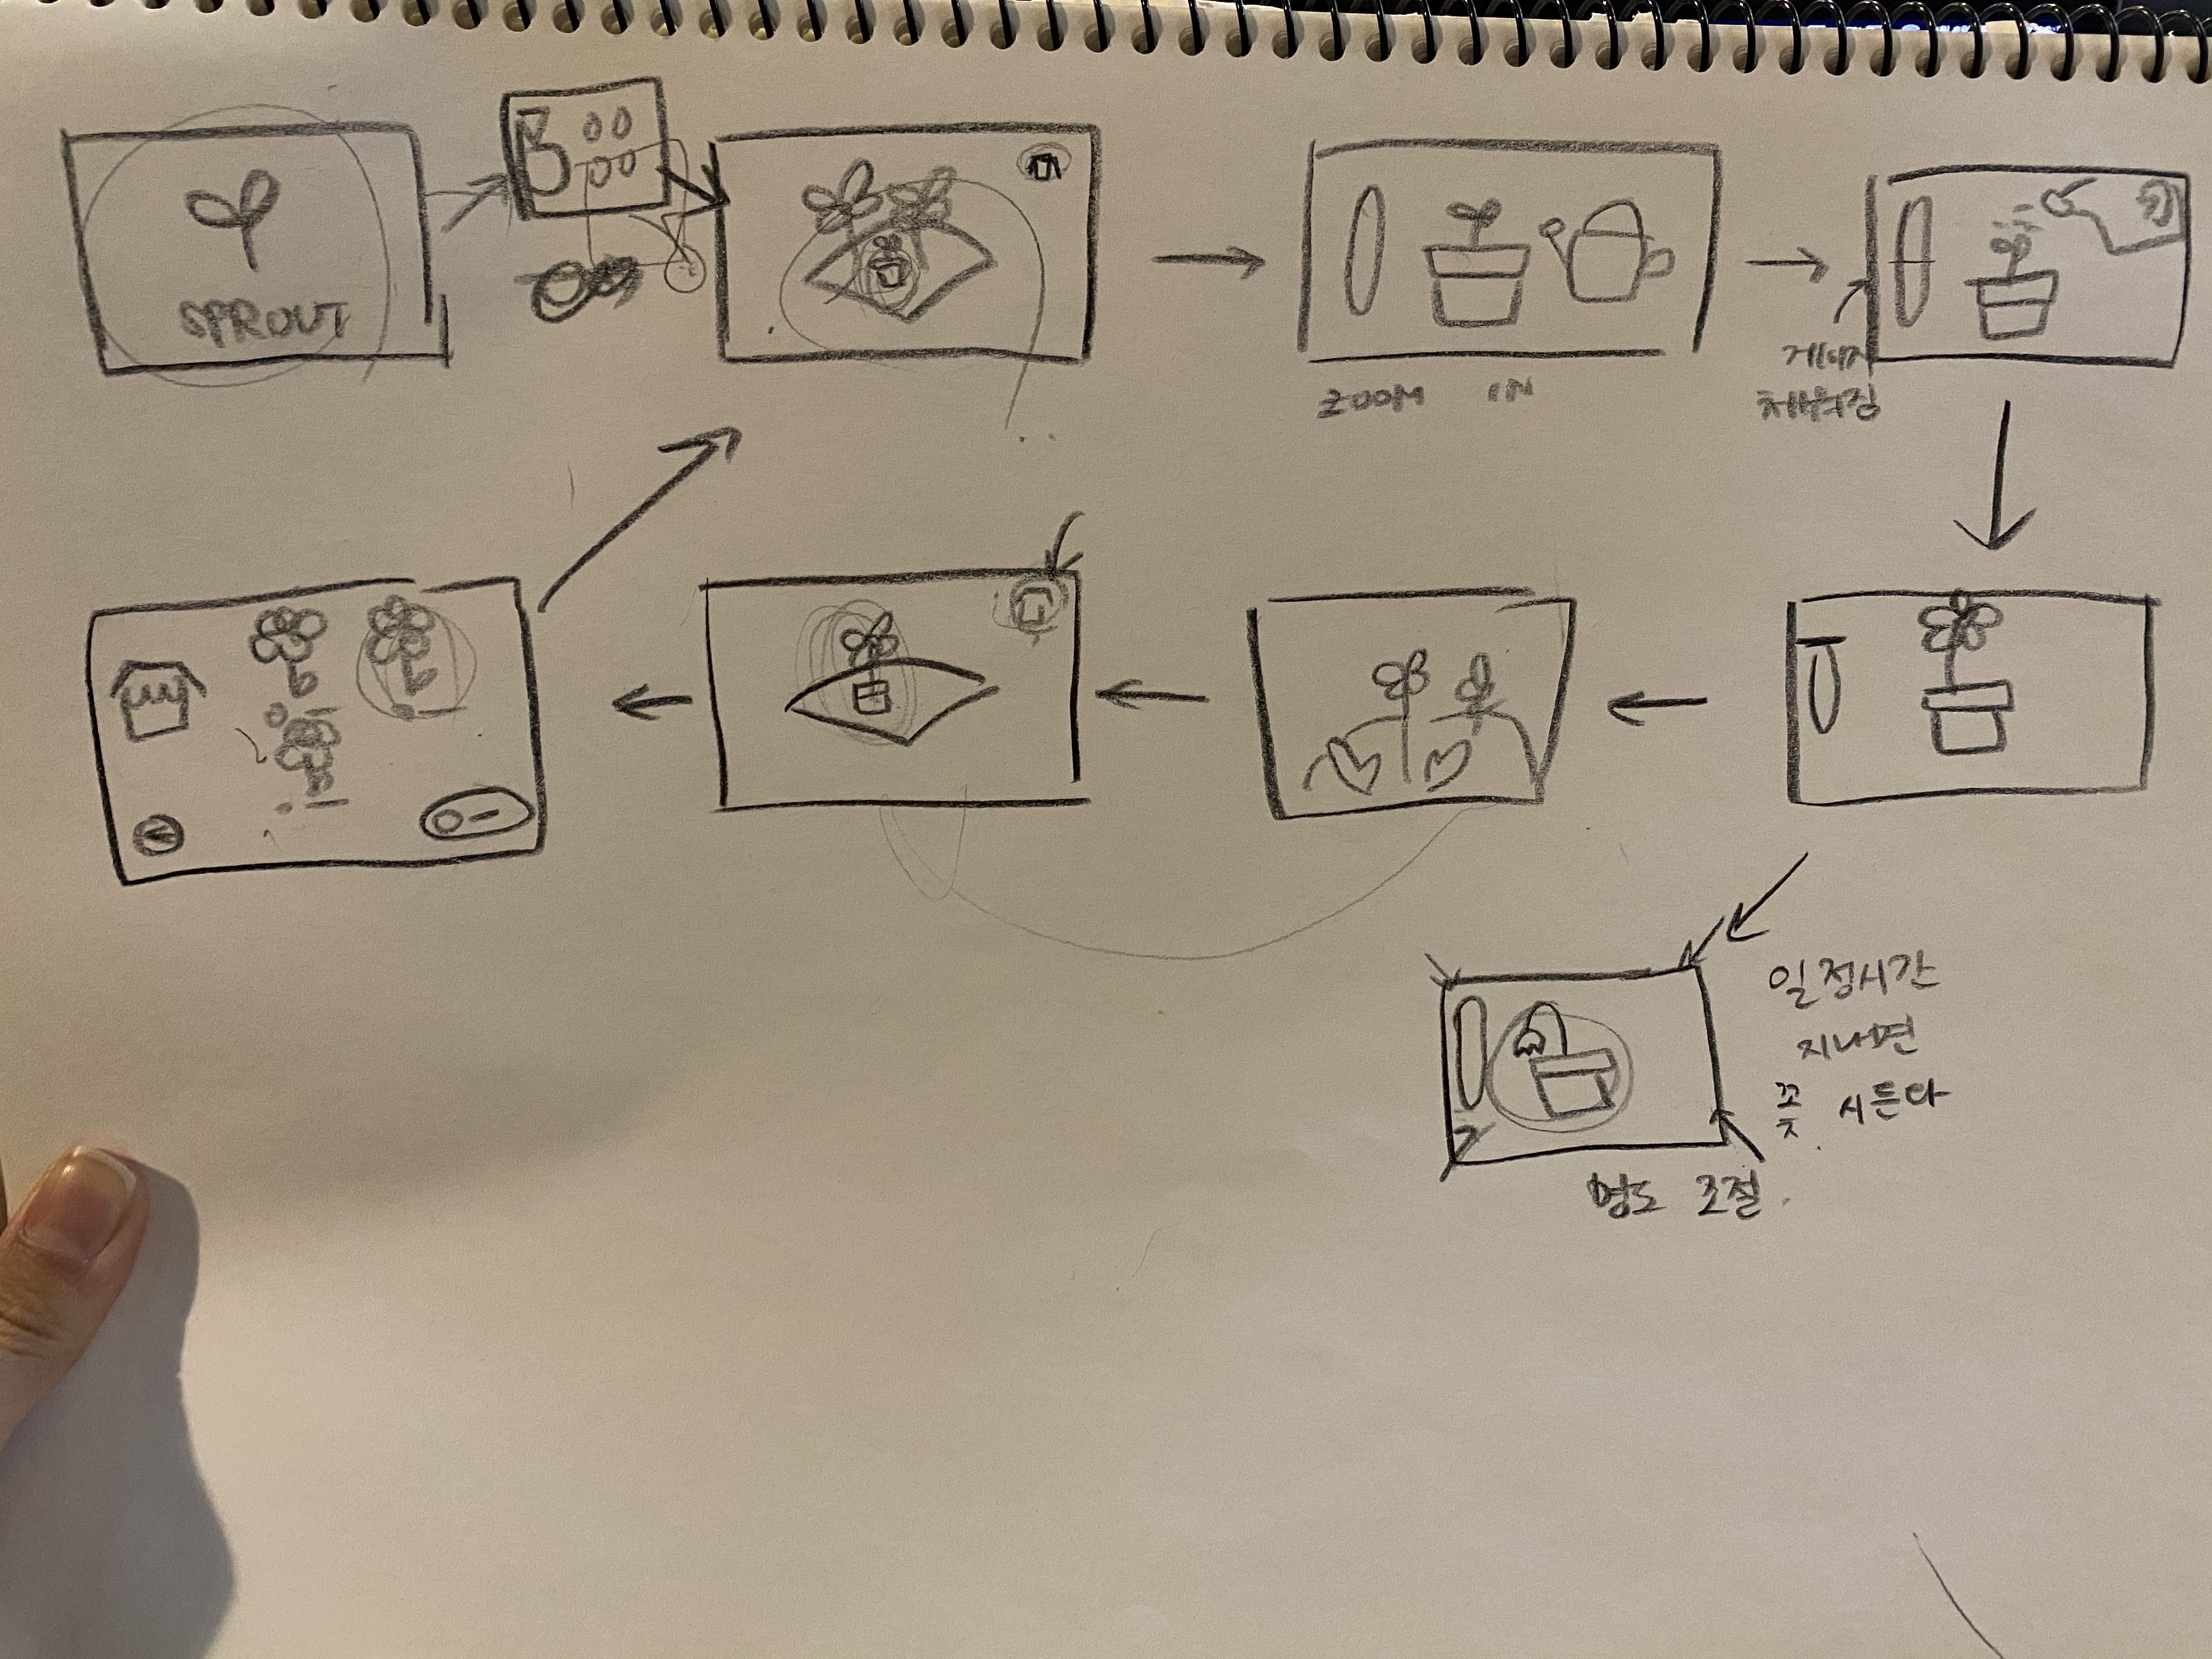 SPROUT
ZOOM IN
게이지
채워짐
일정시간
지나면
꽃 시든다
명도 조절.